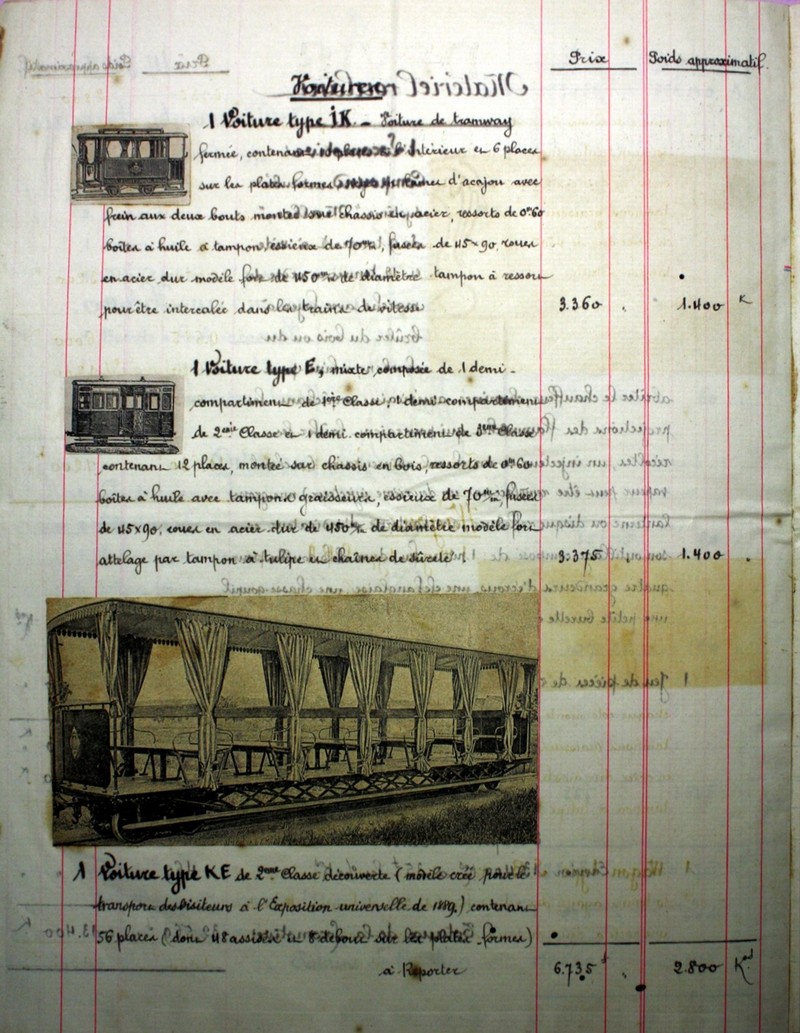 Prix Poids approximatif.
1 Voiture type 1K - Voiture de tramway
fermée, contenant à l'intérieur et 6 places
sur les plates formes d'acajou avec
frein aux deux bouts montée sur chassis en acier, ressorts de 0m60
boîtes à huile à tampon, essieux de 70m/m, fusées de 45×90, roues
en acier dur modèle fort de 450m/m de diamètre tampon à ressort
pour être intercalée dans les trains de vitesse 3.360 1.400 K
1 Voiture type E, mixte, composée de 1 demi-
compartiment de 1ère Classe, 1 demi-compartiment
de 2ème Classe et 1 demi-compartiment de 3ème Classe
contenant 12 places, montée sur chassis en bois, ressorts de 0m60
boîtes à huile avec tampons graisseurs, essieux de 70m/m, fusées
de 45×90, roues en acier dur de 450m/m de diamètre modèle fort
attelage par tampon à tulipe et chaînes de sûreté. 3.375 1.400
1 Voiture type KE de 2ème Classe découverte (modèle créé pour le
transport des Visiteurs à l'Exposition universelle de 1889) contenant
56 places (dont 48 assises et 8 debout sur les plates formes)
à Reporter 6.735 2.800 K